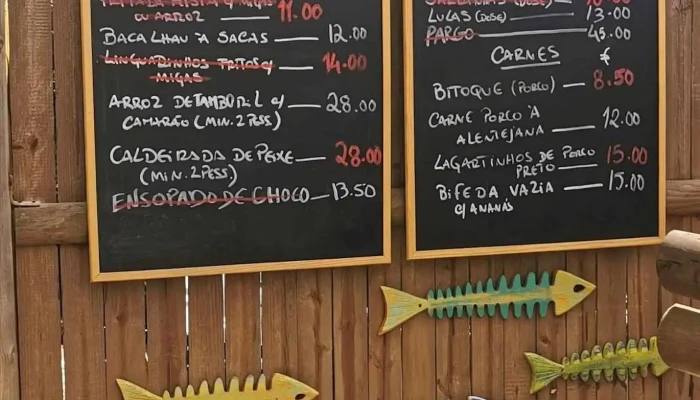 C/ ARROZ 11.00
BACALHAU À SACAS 12.00
LINGUADINHOS FRITOS C/ 14.00
MIGAS
ARROZ DE TAMBORIL C/ 28.00
CAMARÃO (MIN. 2 PESS)
CALDEIRADA DE PEIXE 28.00
(MIN. 2 PESS.)
ENSOPADO DE CHOCO 13.50
LULAS (DOSE) 13.00
PARGO 45.00
CARNES €
BITOQUE (PORCO) 8.50
CARNE PORCO À 12.00
ALENTEJANA
LAGARTINHOS DE PORCO 15.00
PRETO
BIFE DA VAZIA 15.00
C/ ANANÁS